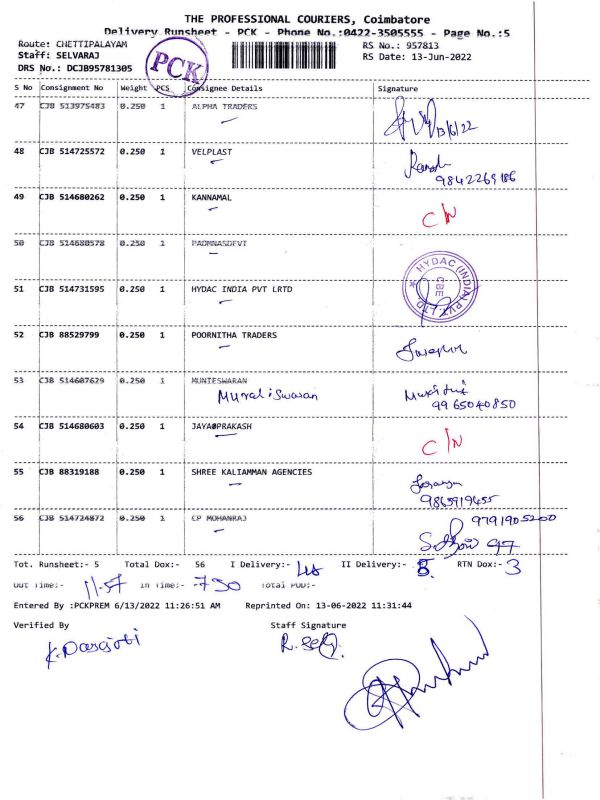 THE PROFESSIONAL COURIERS, Coimbatore
Delivery Runsheet - PCK - Phone No.:0422-3505555 - Page No.:5
Route: CHETTIPALAYAM RS No.: 957813
Staff: SELVARAJ RS Date: 13-Jun-2022
DRS No.: DCJB95781305
PCK
S No Consignment No Weight PCS Consignee Details Signature
47 CJB 513975483 0.250 1 ALPHA TRADERS
13/6/22
48 CJB 514725572 0.250 1 VELPLAST
9842269186
49 CJB 514680262 0.250 1 KANNAMAL
C/N
50 CJB 514680578 0.250 1 PADMNASDEVI
51 CJB 514731595 0.250 1 HYDAC INDIA PVT LRTD
HYDAC (INDIA) PVT. LTD. CBE
52 CJB 88529799 0.250 1 POORNITHA TRADERS
53 CJB 514607629 0.250 1 MUNIESWARAN
Muraliswaran
9965040850
54 CJB 514680603 0.250 1 JAYA@PRAKASH
C/N
55 CJB 88319188 0.250 1 SHREE KALIAMMAN AGENCIES
9865919455
56 CJB 514724872 0.250 1 CP MOHANRAJ
9791905200
Tot. Runsheet:- 5 Total Dox:- 56 I Delivery:- II Delivery:- RTN Dox:- 3
Out Time:- 11.57 In Time:- 730 Total POD:-
Entered By :PCKPREM 6/13/2022 11:26:51 AM Reprinted On: 13-06-2022 11:31:44
Verified By Staff Signature